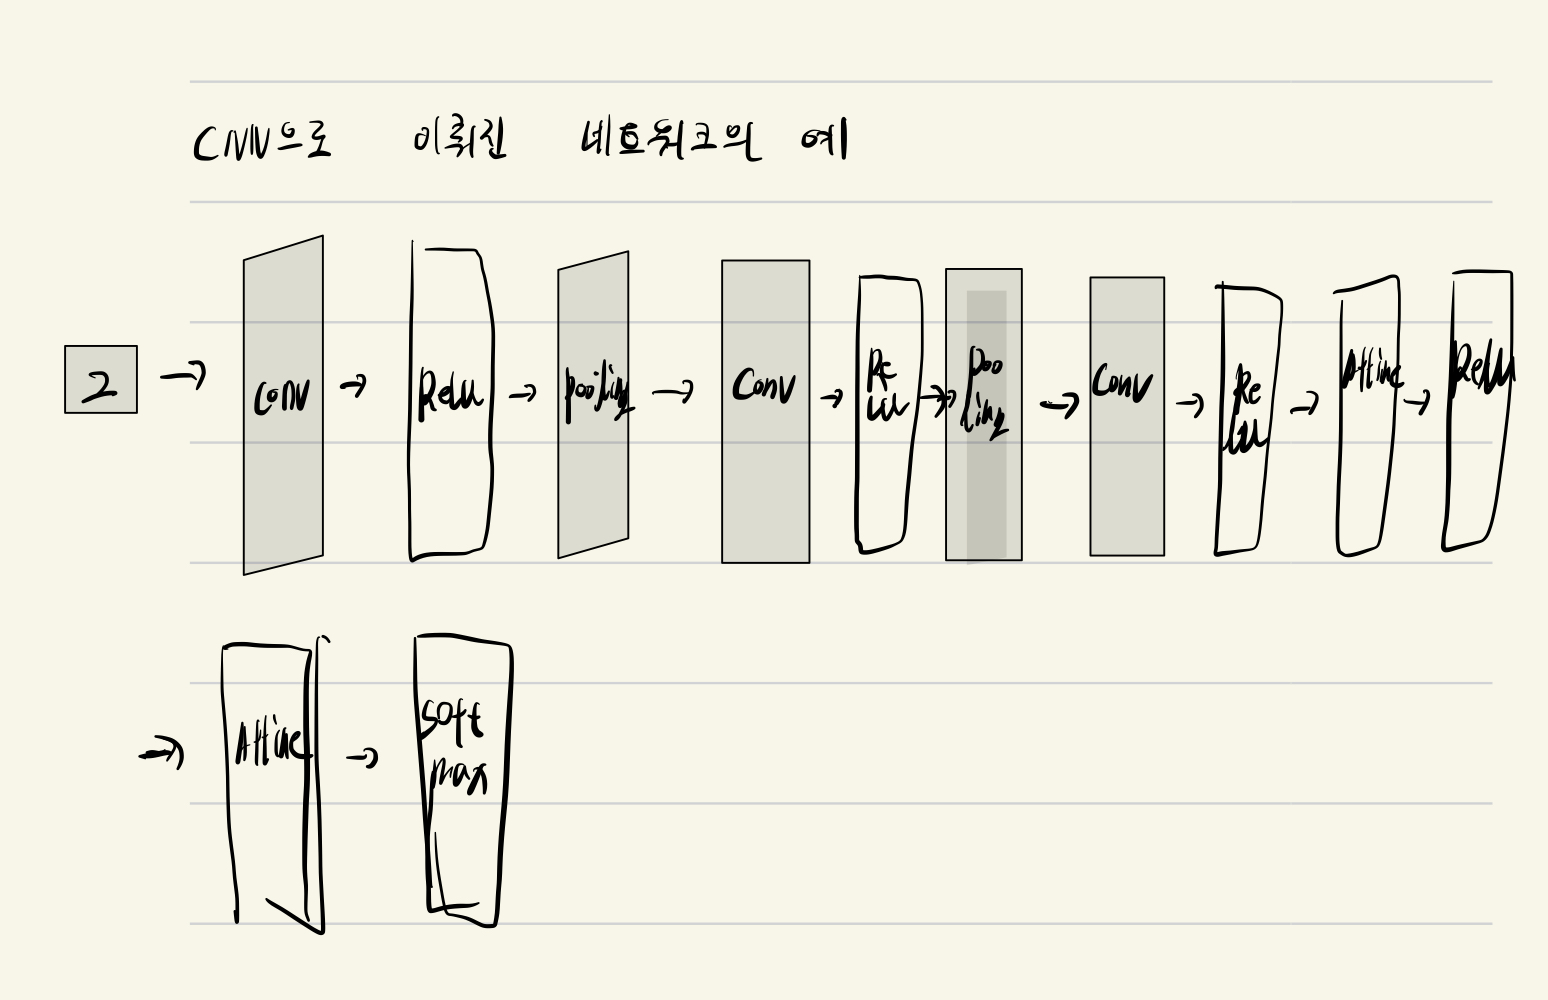 CNN으로 이뤄진 네트워크의 예
2 → Conv → Relu → pooling → Conv → Re Lu → Poo ling → Conv → Re Lu → Affine → Relu
→ Affine → Soft max